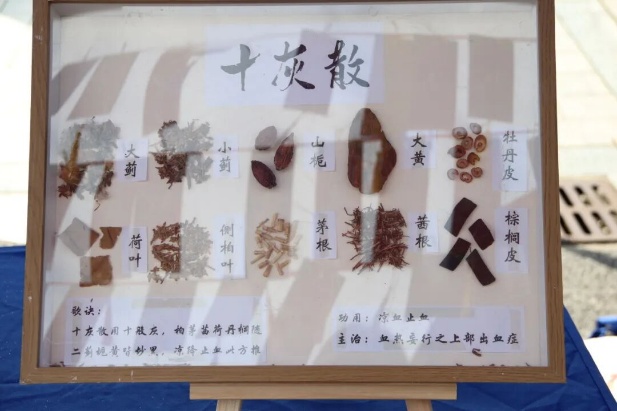 十灰散
大蓟
小蓟
山栀
大黄
牡丹皮
荷叶
侧柏叶
茅根
茜根
棕榈皮
歌诀：
十灰散用十般灰，柏茅茜荷丹榈随
二蓟栀黄皆妙黑，凉降止血此方推
功用：凉血止血
主治：血热妄行之上部出血症